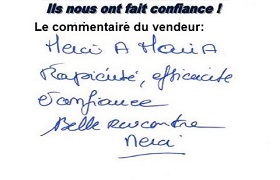 Ils nous ont fait confiance !
Le commentaire du vendeur:
Merci A Maria
Rapidité, efficacité
Confiance
Belle rencontre
Merci